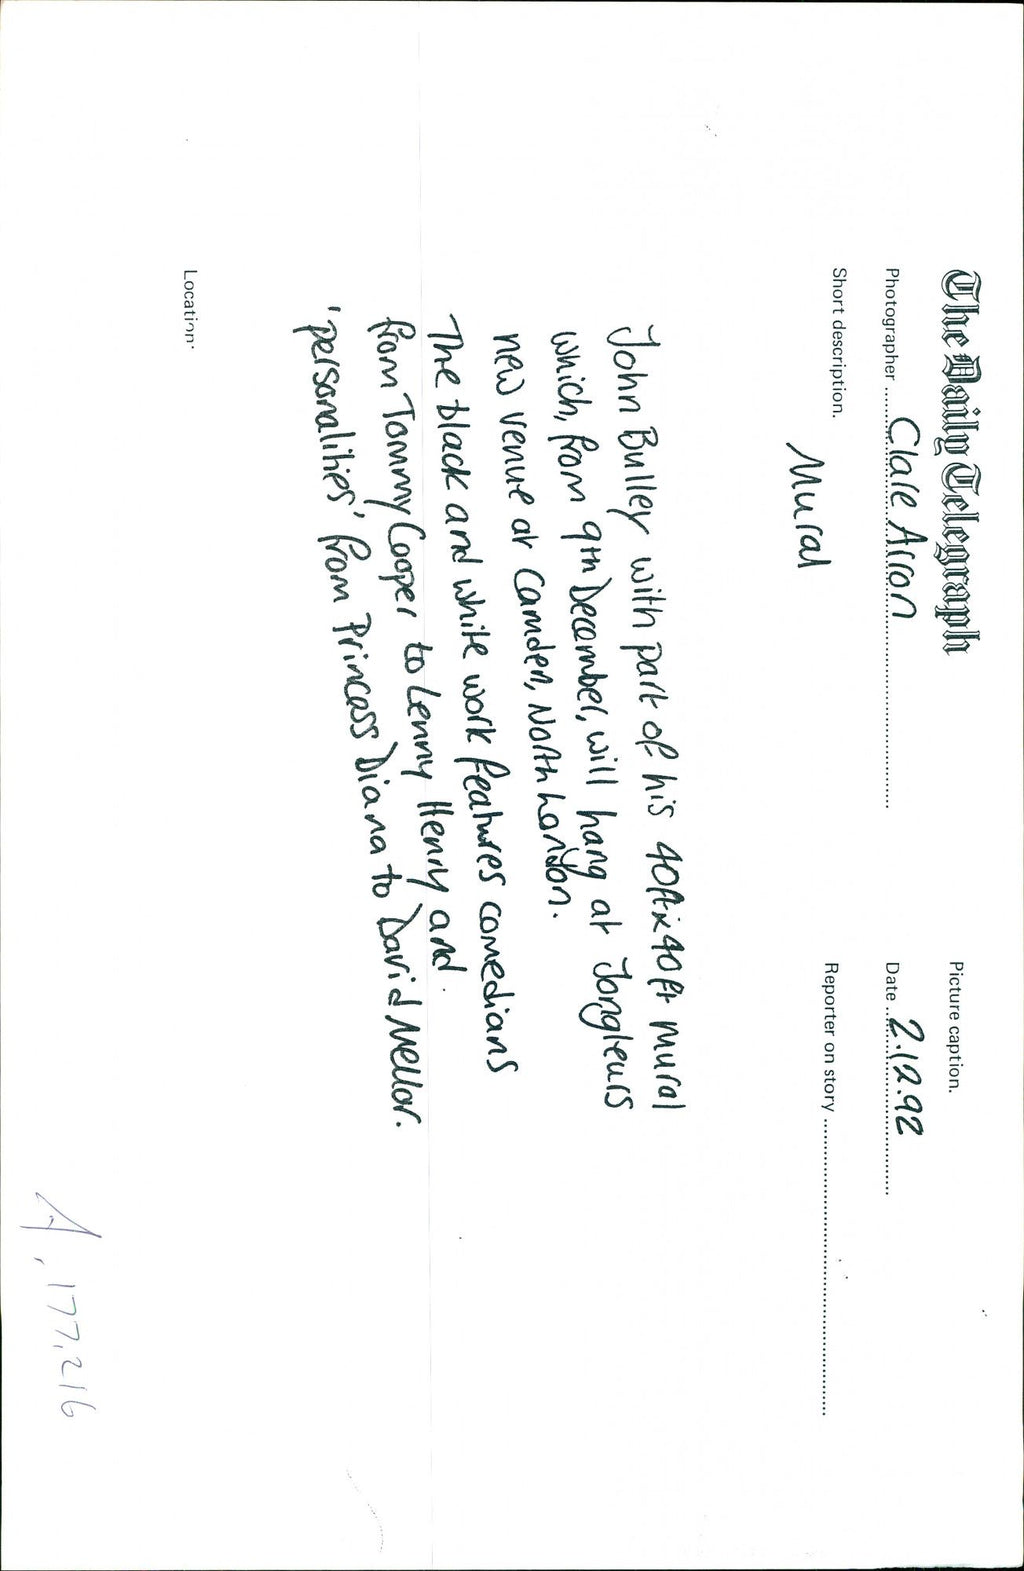 The Daily Telegraph
Picture caption.
Photographer Clare Arron
Date 2.12.92
Short description.
Reporter on story
Mural
John Bulley with part of his 40ft x 40ft mural
which, from 9th December, will hang at Jongleurs
new venue at Camden, North London.
The black and white work features comedians
from Tommy Cooper to Lenny Henry and
'personalities' from Princess Diana to David Mellor.
Location:
A, 177,216